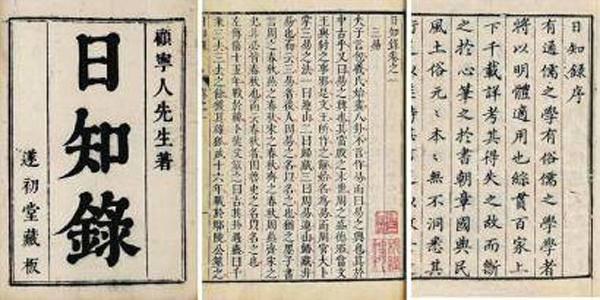 顧寧人先生著
日知錄
遂初堂藏板
日知錄卷之一
三易
夫子言包羲氏始畫八卦不言作易而曰易之興也其於
中古乎又曰易之興也其當殷之末世周之盛德邪當文
王與紂之事邪是文王所作之辭始名為易而周官大卜
掌三易之法一曰連山二曰歸藏三曰周易連山歸藏非
易也而云三易者後人因易之名以名之也猶之墨子書
言周之春秋燕之春秋宋之春秋齊之春秋周燕齊宋之
史非必皆春秋也而云春秋者因魯史之名以名之也
左傳僖十五年戰於韓卜徒父筮之曰吉其卦遇蠱曰千
乘三去三去之餘獲其雄狐成十六年戰於鄢陵公筮之
日知錄序
有通儒之學有俗儒之學學者
將以明體適用也綜貫百家上
下千載詳考其得失之故而斷
之於心筆之於書朝章國典民
風土俗元〻本〻無不洞悉其